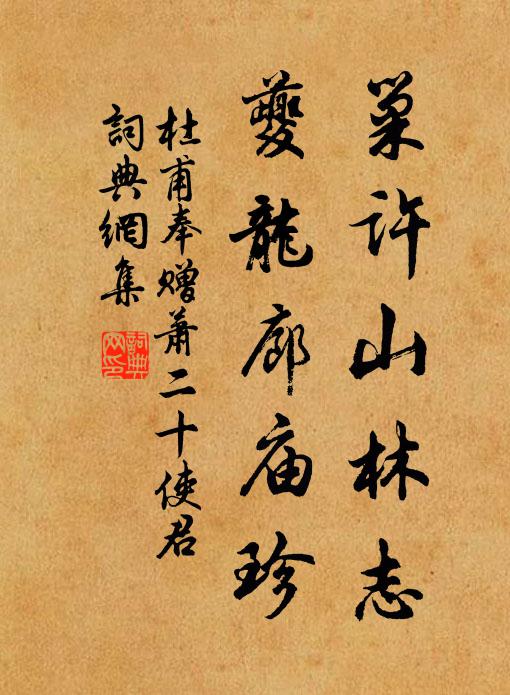 巢許山林志
夔龍廊庙珍
杜甫奉贈蕭二十使君
詞典網集
詞典网印